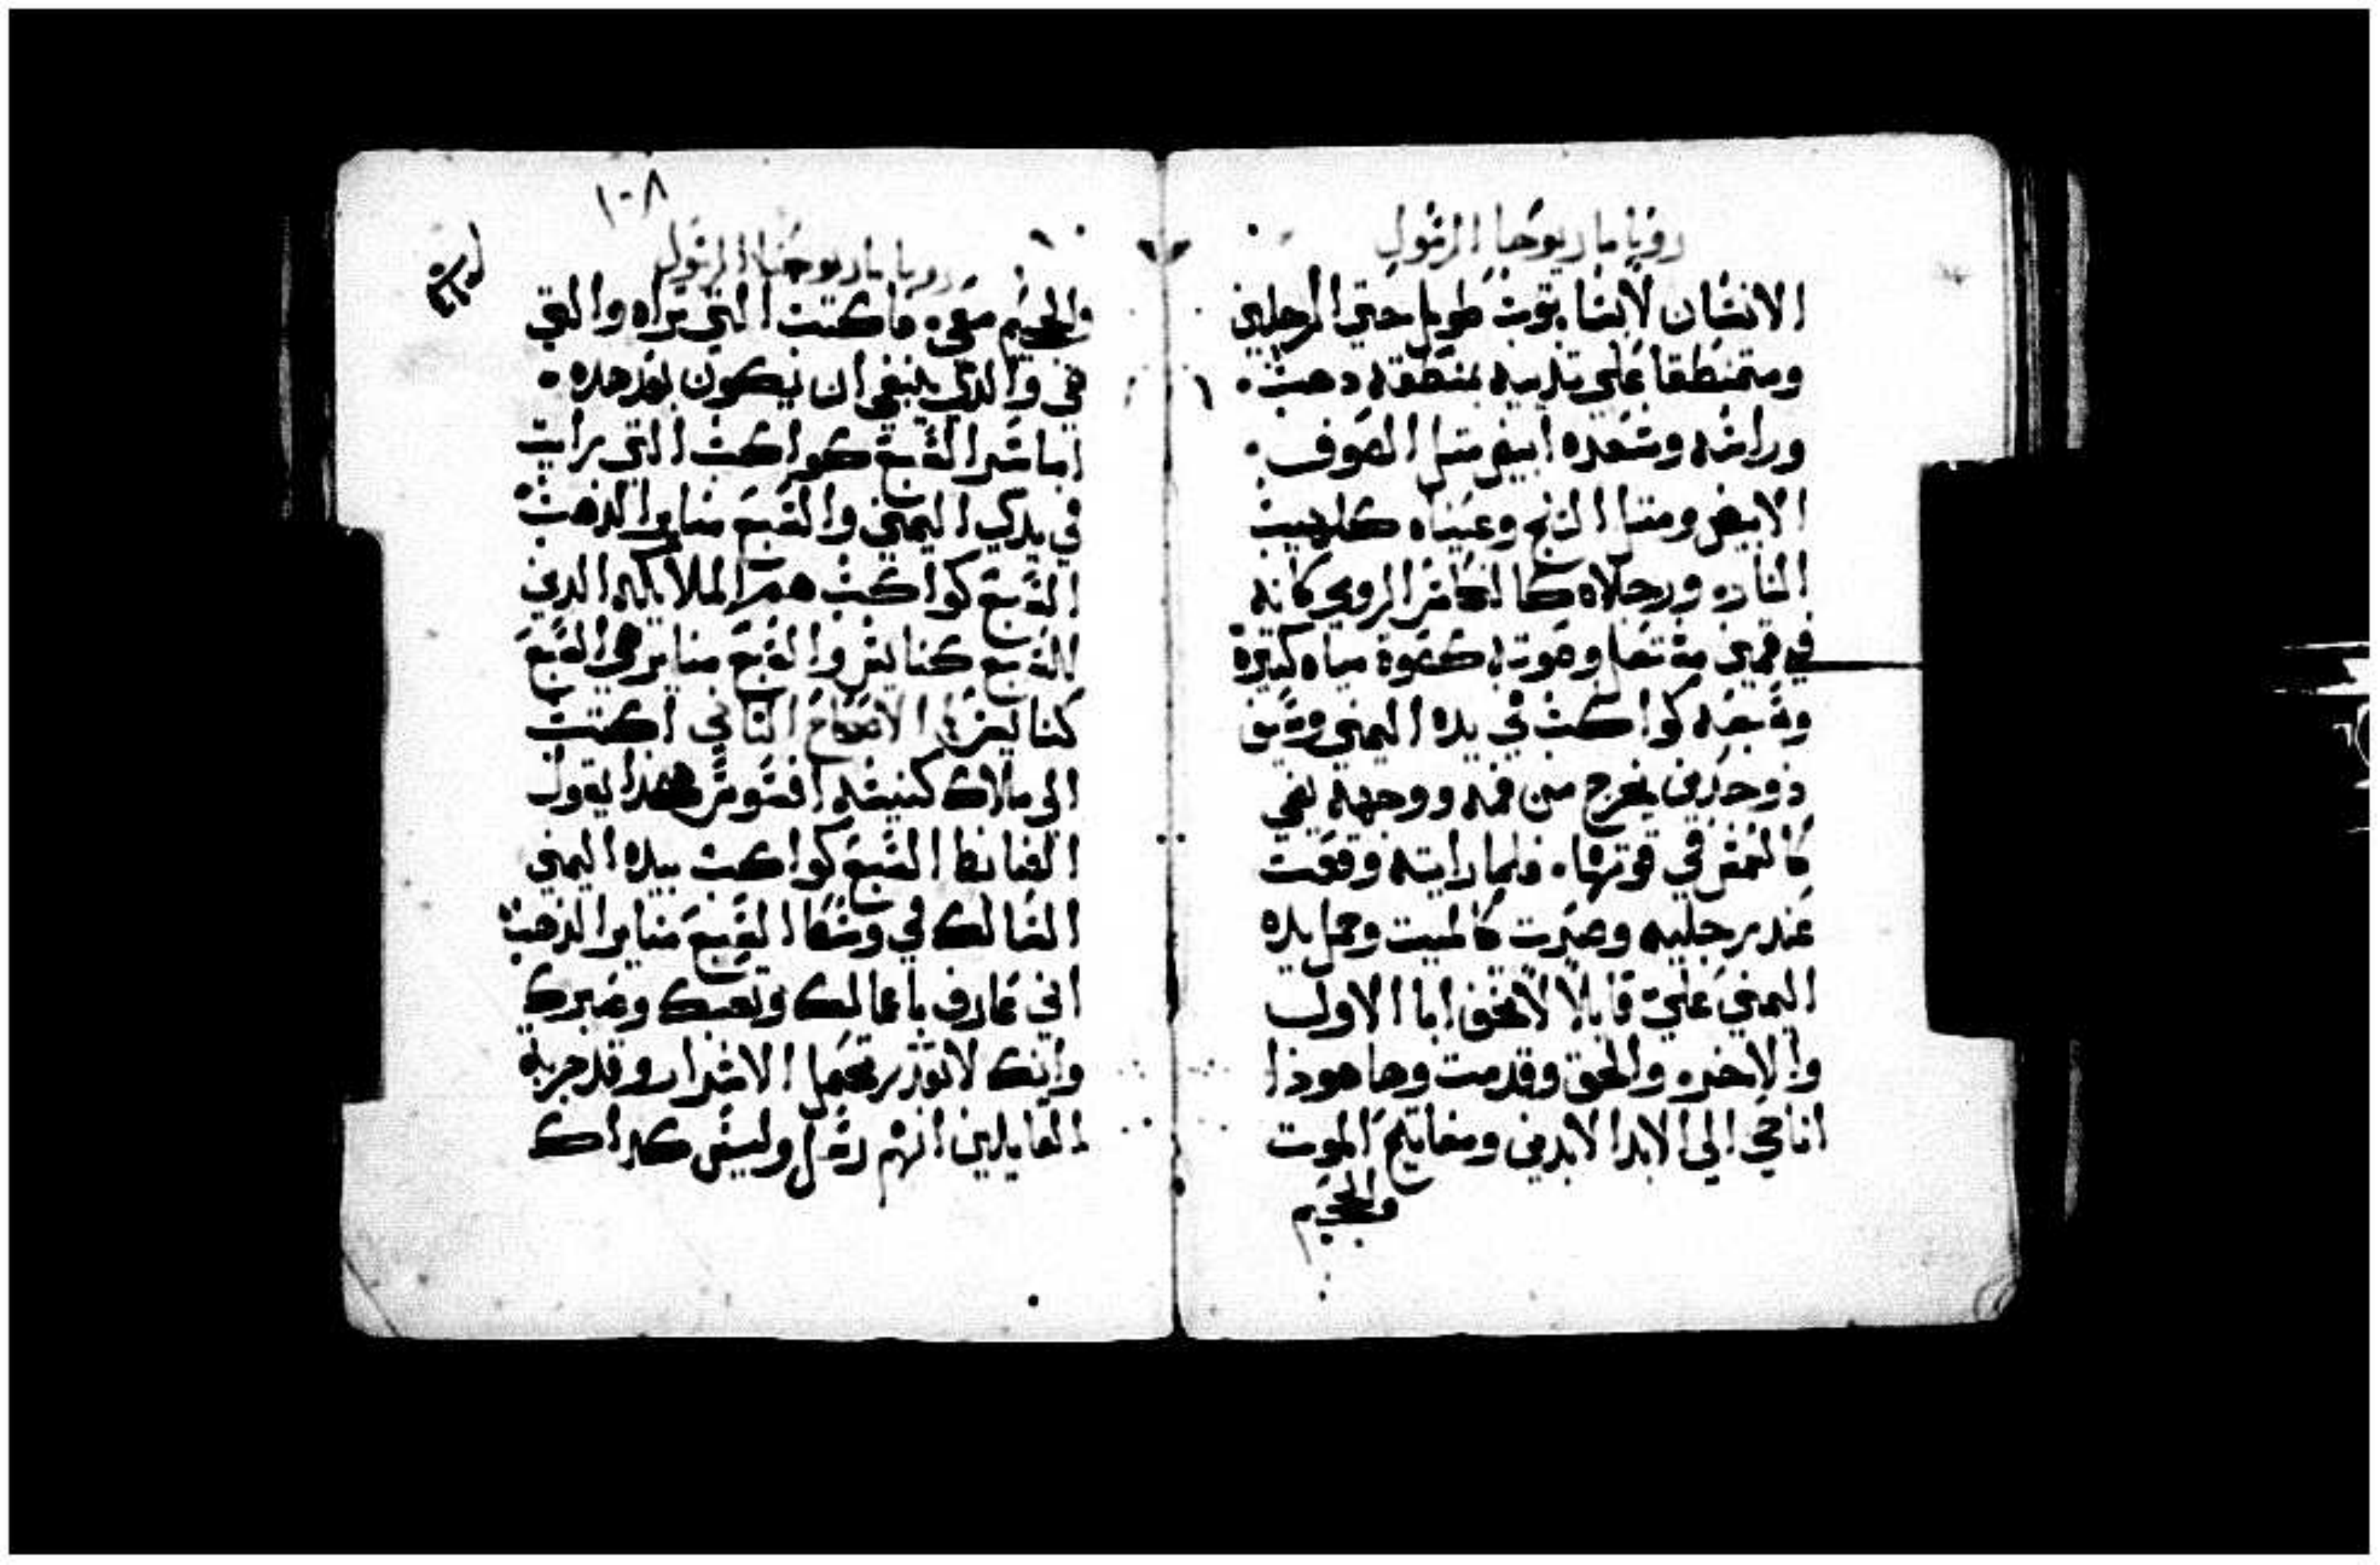 رويا مار يوحنا الرسول
الانسان لابسا بثوب طويل حتي الرجلين
ومتمنطقا علي تدييه بمنطقه دهب
وراسه وشعره ابيض مثل الصوف
الابيض ومثل الثلج وعيناه كلهيب
النار ورجلاه كالنحاس الرومي كانه
في قمين مشتعل وصوته كصوت مياه كثيرة
وسبعه كواكب في يده اليمني وسيف
ذو حدين يخرج من فمه ووجهه يضي
كالشمس في قوتها. فلما رايته وقعت
عند رجليه وصرت كالميت وجعل يده
اليمني علي قايلا لا تخف انا الاول
والاخر والحق وقد مت وها هوذا
انا حي الي الابد الابدين ومفاتيح الموت
والجحيم
١٠٨
رويا مار يوحنا الرسول
والجحيم معي. فاكتب التي تراه والتي
هي والذي ينبغي ان يكون بعد هده.
اما سر السبع كواكب التي رايت
في يدي اليمني والسبع مناير الذهب
السبع كواكب هم الملايكه الدين
للسبع كنايس والسبع مناير هي السبع
كنايس الاصحاح الثاني اكتب
الي ملاك كنيسه افسوس هكذا يقول
الضابط السبع كواكب بيده اليمني
السالك في وسط السبع مناير الذهب
اني عارف باعمالك وتعبك وصبرك
وانك لا تقدر تحتمل الاشرار وقد جربة
القايلين انهم رسل وليس كداك